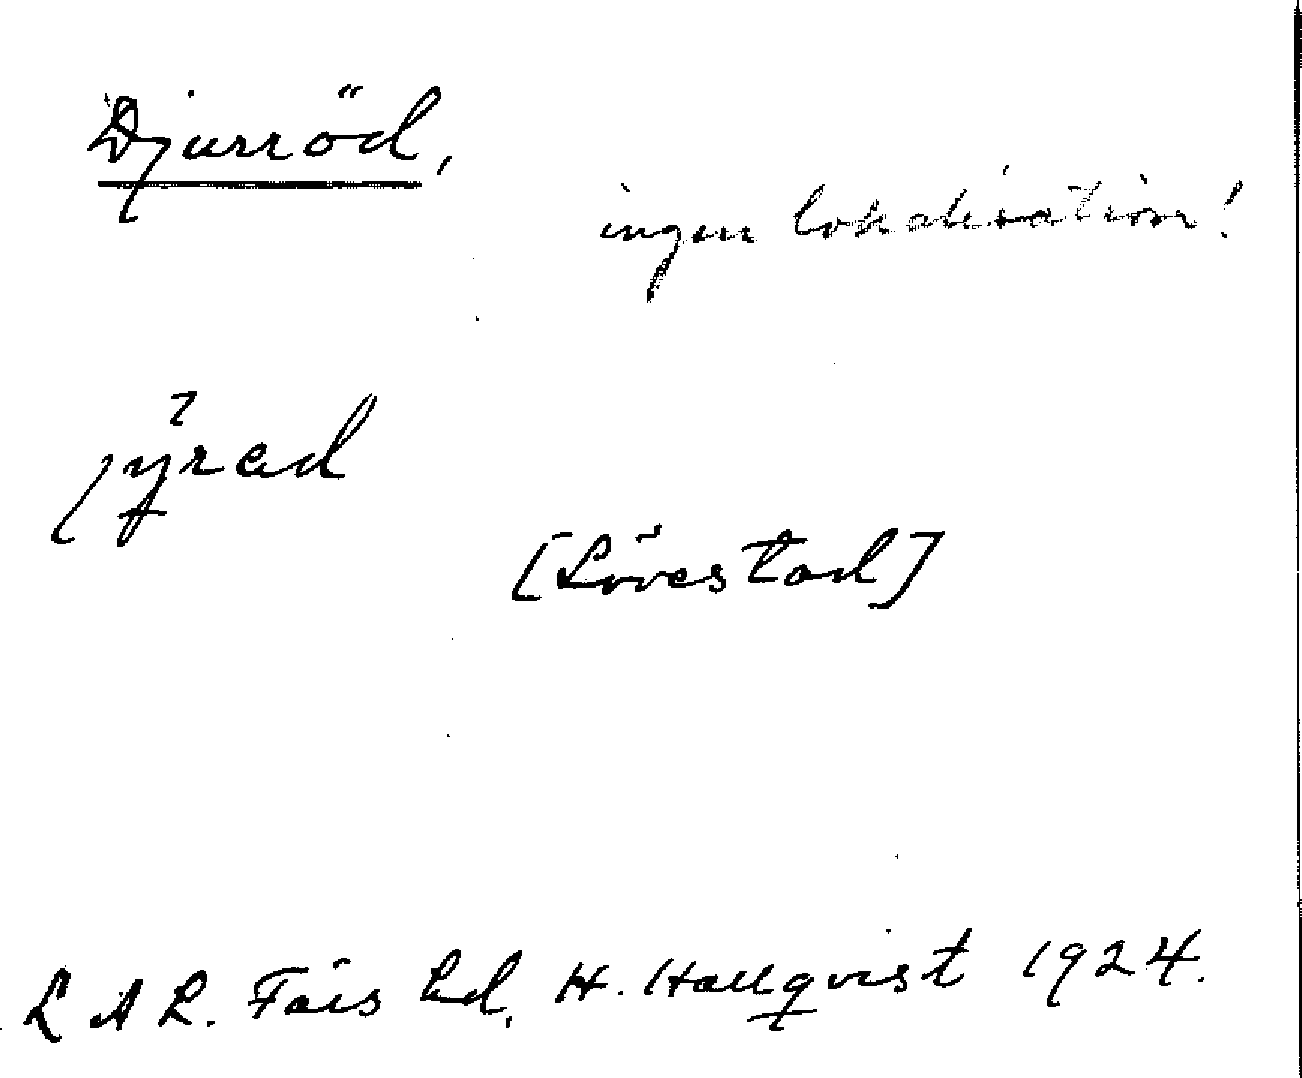 Djurröd,
ingen lokalisation!
[Lövestad]
Färs hd. H. Hallqvist 1924.